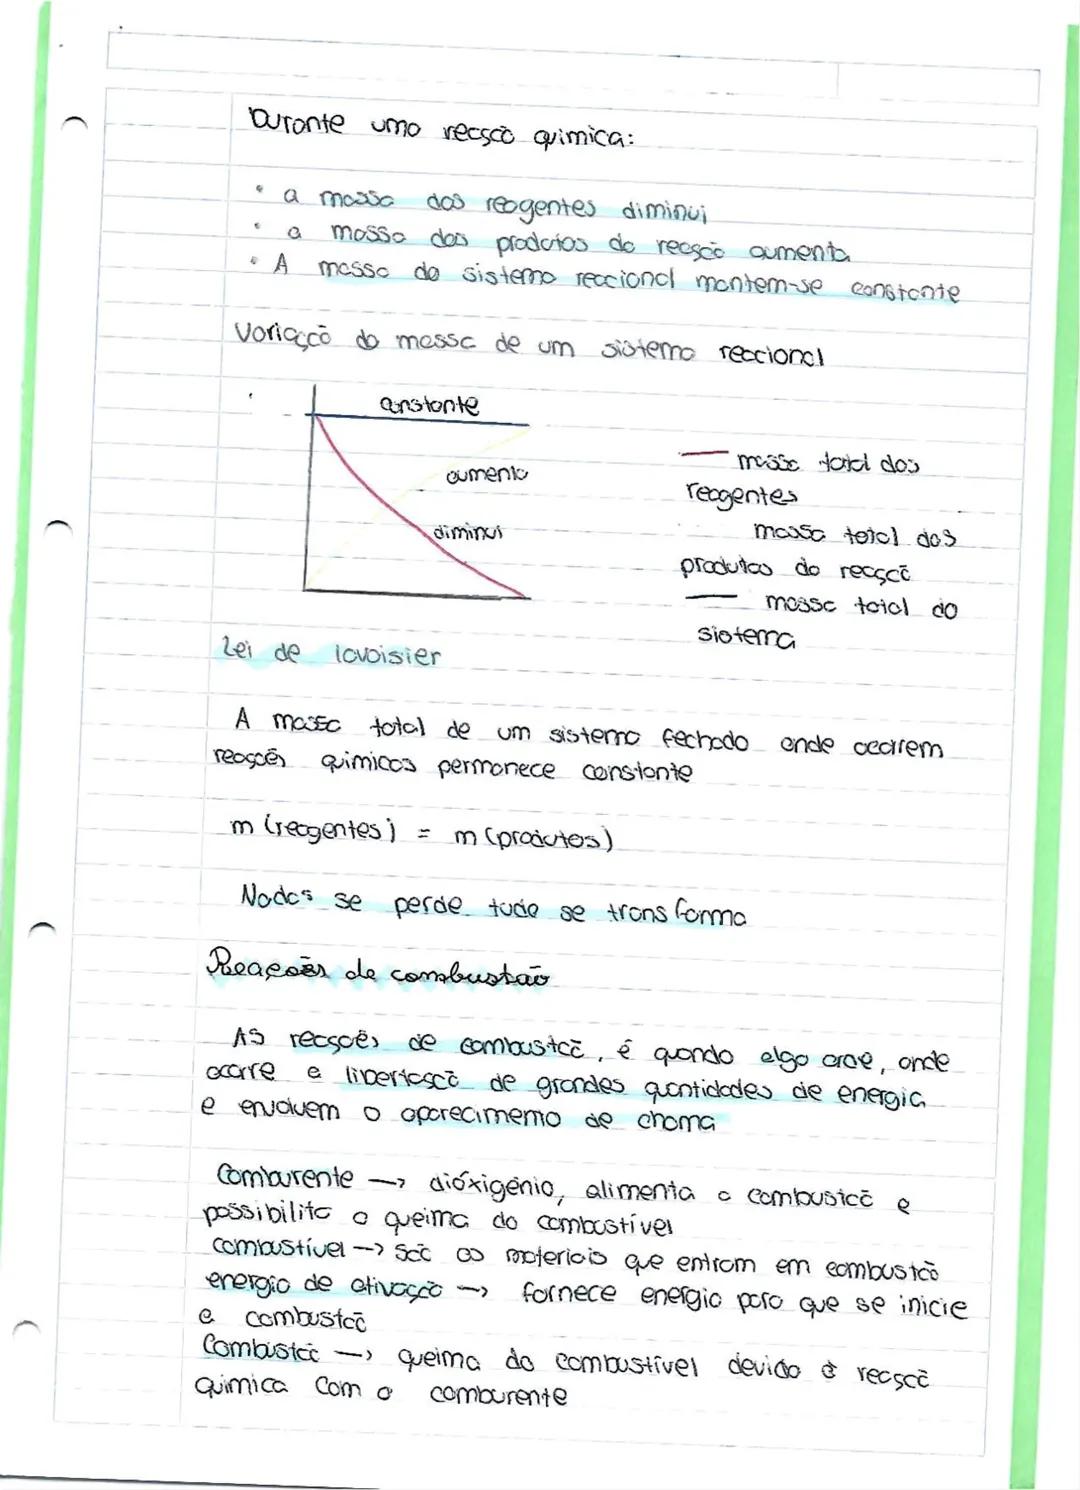 Durante uma reação química:
a massa dos reagentes diminui
a massa dos produtos da reação aumenta
A massa do sistema reccional mantem-se constante
Variação da massa de um sistema reccional
constante
aumenta
diminui
massa total dos
reagentes
massa total dos
produtos da reação
massa total do
sistema
Lei de lavoisier
A massa total de um sistema fechado onde ocorrem
reações químicas permanece constante
m (reagentes) = m (produtos)
Nadas se perde tudo se transforma
Reações de combustão
AS reações de combustão, é quando algo arde, onde
ocorre a libertação de grandes quantidades de energia
e envolvem o aparecimemo de chama
Comburente → dióxigénio, alimenta a combustão e
possibilita a queima do combustível
combustível → são os materiais que entram em combustão
energia de ativação → fornece energia para que se inicie
a combustão
Combustão → queima do combustível devido à reação
química com o comburente